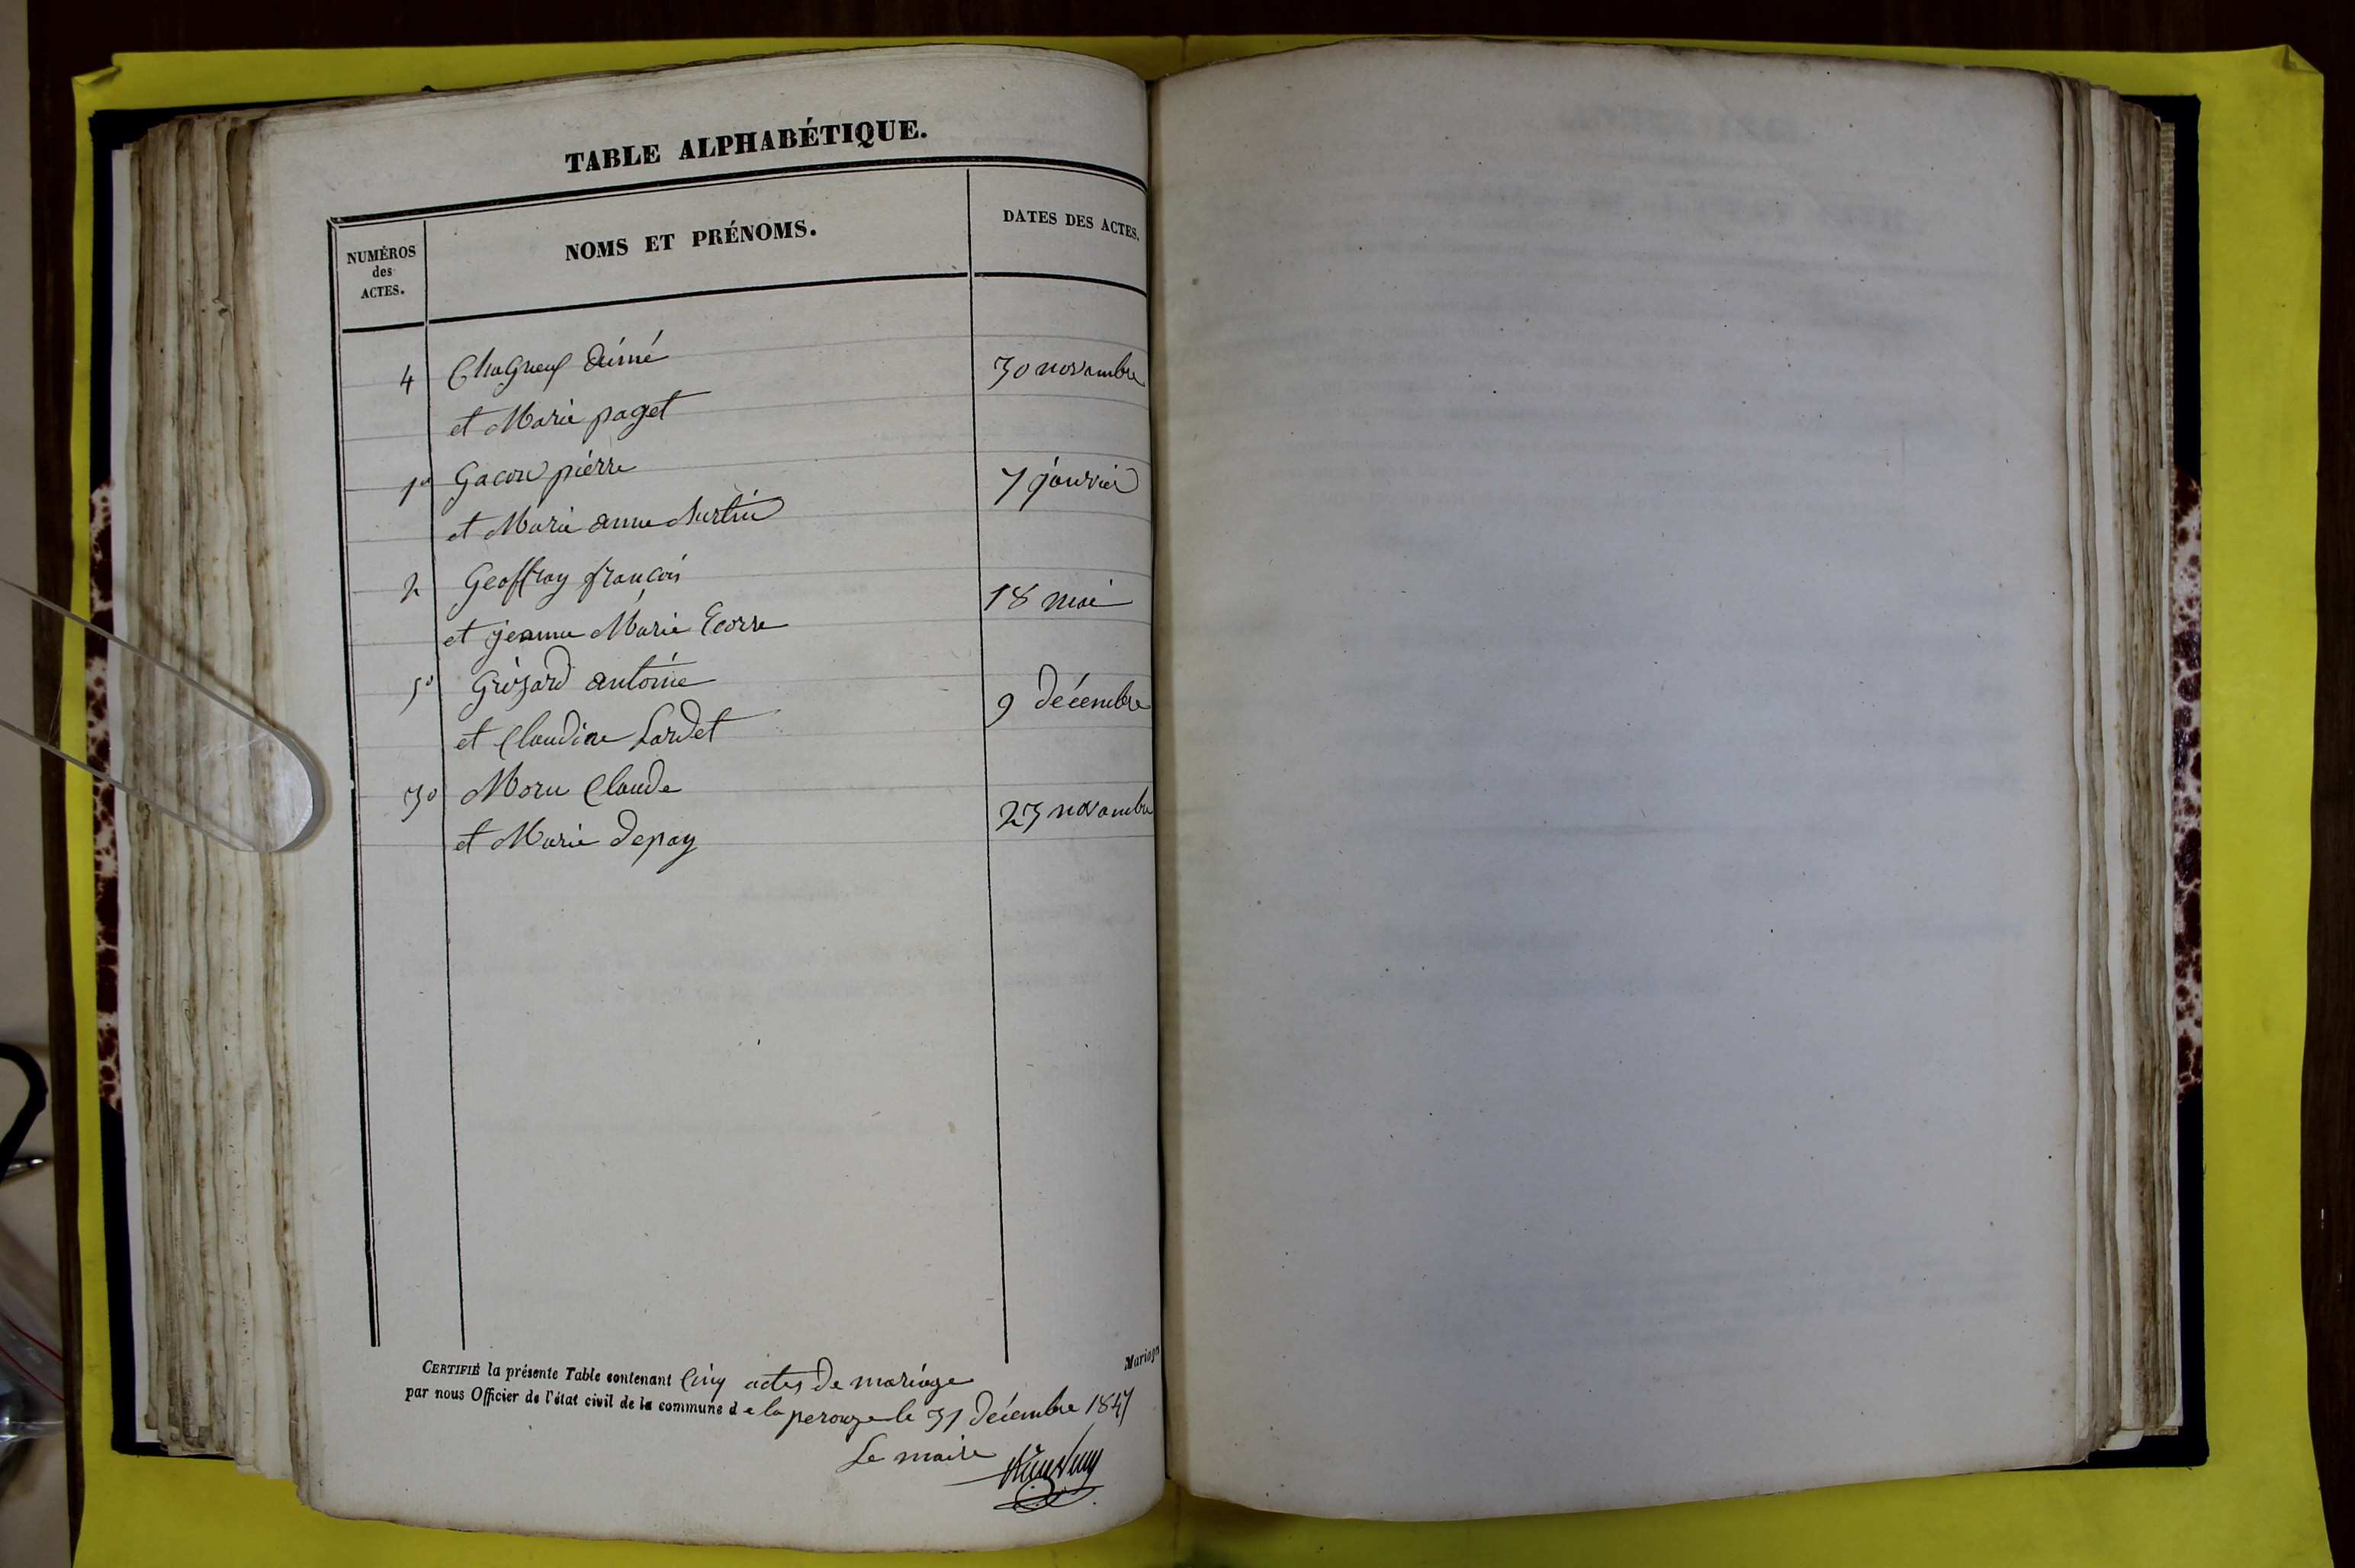 TABLE ALPHABÉTIQUE.
NUMÉROS
des
ACTES.
NOMS ET PRÉNOMS.
DATES DES ACTES.
4
30 novambre
et Marie paget
1º Gacon pierre
7 janvier
et Marie anne
2 Geoffray françois
18 mai
et jeanne Marie Ecorre
5º Grizard antoine
9 décembre
et Claudine Lardet
3º Moru Claude
23 novambre
et Marie depay
Mariages
CERTIFIÉ la présente Table contenant Cinq actes de mariage
par nous Officier de l'état civil de la commune de la perouze le 31 décembre 1847
Le maire